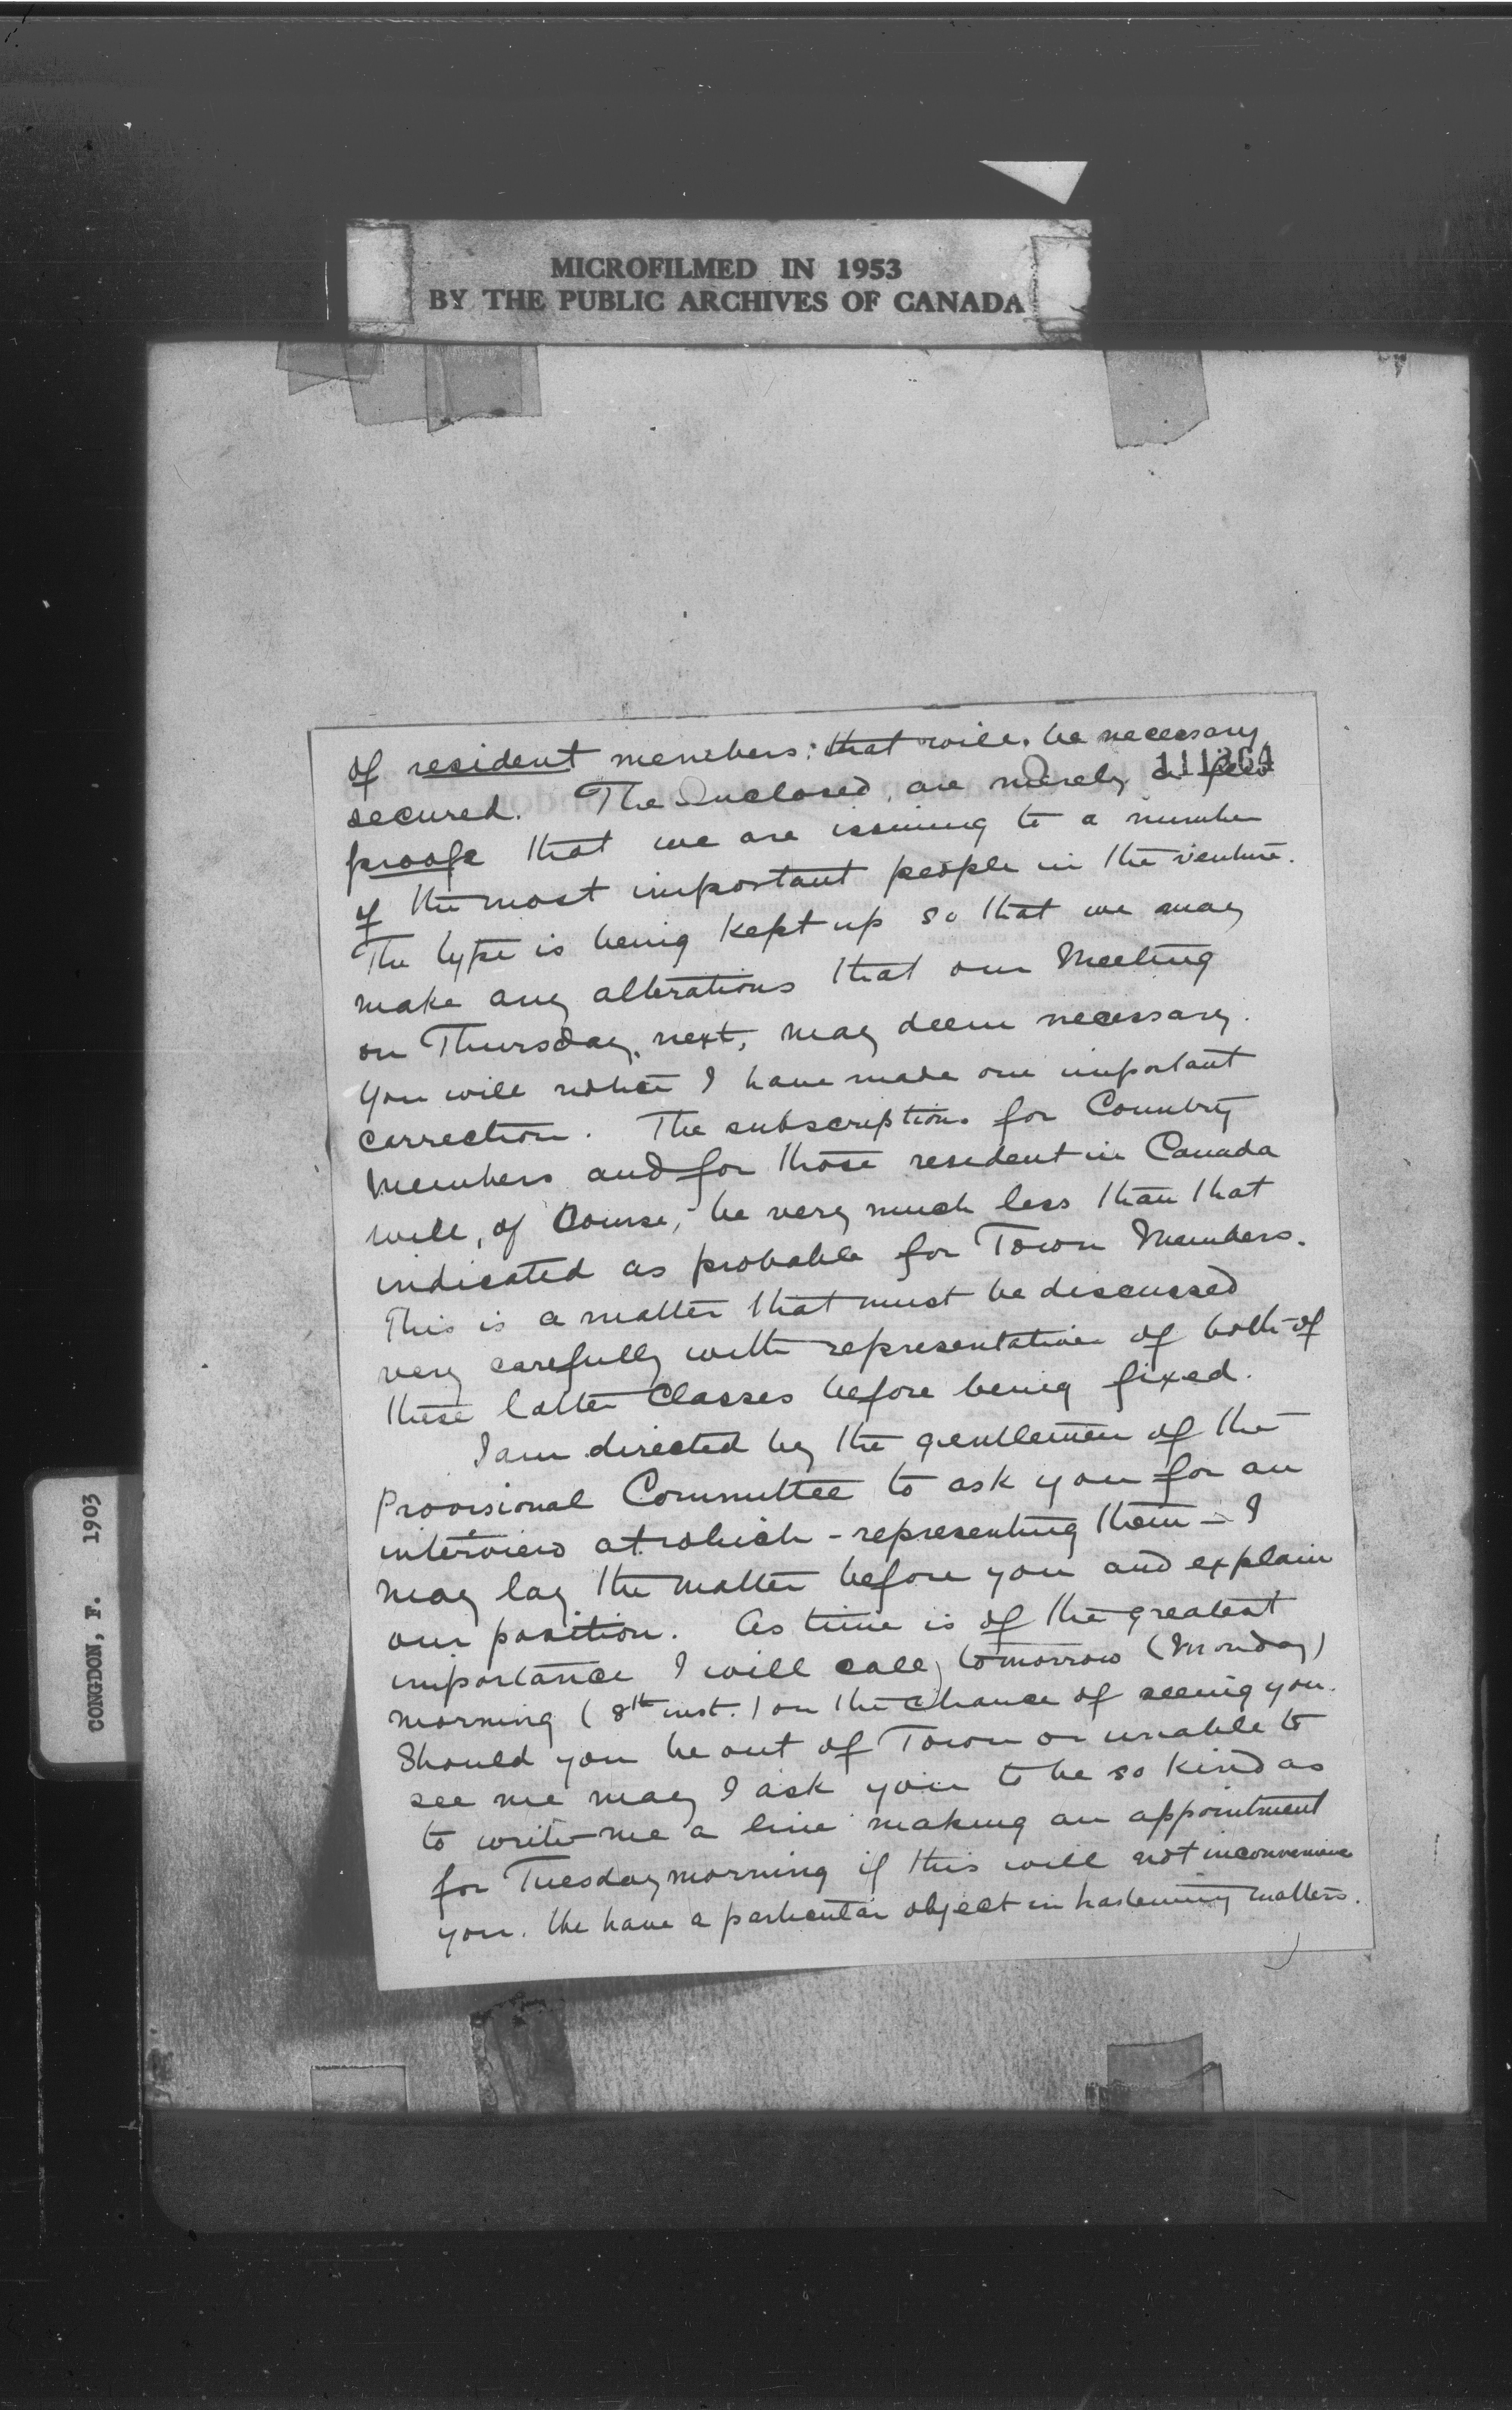 MICROFILMED IN 1953
BY THE PUBLIC ARCHIVES OF CANADA
of resident members: that will be necessary
secured. The Enclosed, are merely a few
proofs that we are issuing to a number
of the most important people in the venture.
The type is being kept up so that we may
make any alterations that our Meeting
on Thursday, next, may deem necessary.
You will notice I have made one important
correction. The subscriptions for Country
Members and for those resident in Canada
will, of Course, be very much less than that
indicated as probable for Town Members.
This is a matter that must be discussed
very carefully with representatives of both of
these latter Classes before being fixed.
I am directed by the gentlemen of the
Provisional Committee to ask you for an
interview at which - representing them - I
may lay the matter before you and explain
our position. As time is of the greatest
importance I will call, tomorrow (Monday)
morning (8th inst.) on the Chance of seeing you.
Should you be out of Town or unable to
see me may I ask you to be so kind as
to write me a line making an appointment
for Tuesday morning if this will not inconvenience
you. We have a particular object in hastening matters.
CONGDON, F. 1903